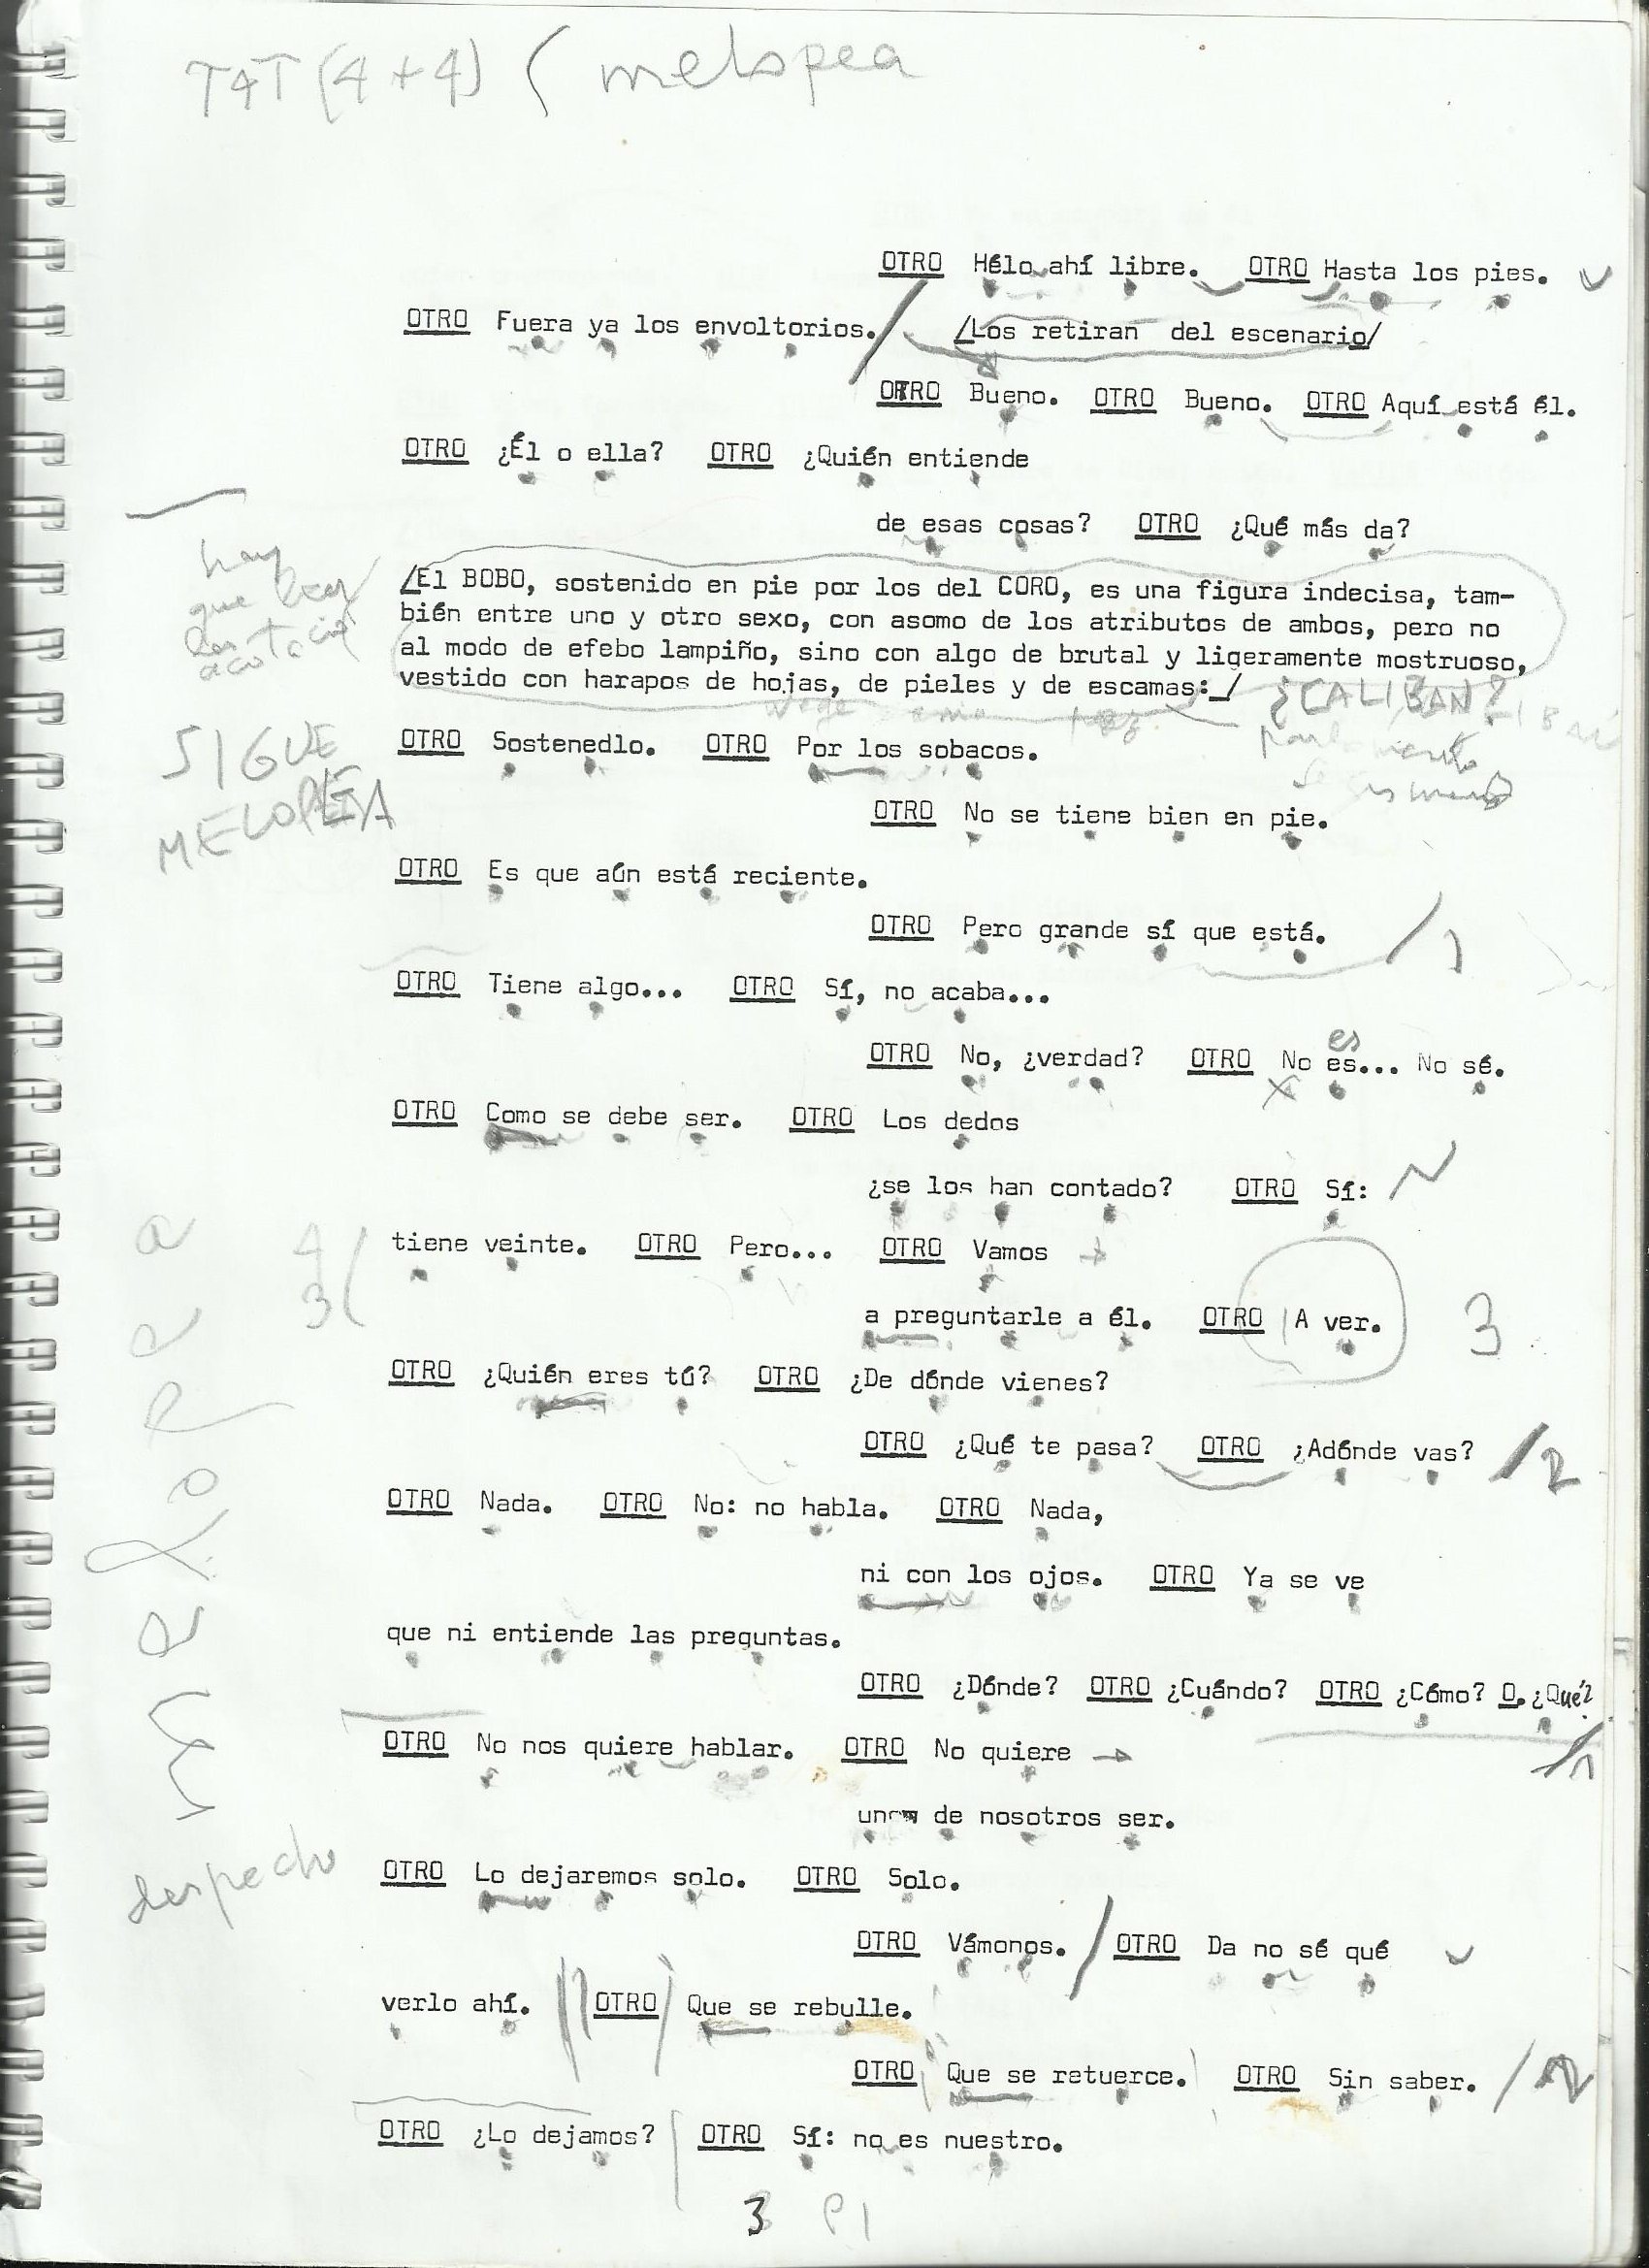 T4T (4+4) ( melopea
OTRO Hélo ahí libre. OTRO Hasta los pies.
OTRO Fuera ya los envoltorios. /Los retiran del escenario/
OTRO Bueno. OTRO Bueno. OTRO Aquí está él.
OTRO ¿Él o ella? OTRO ¿Quién entiende
de esas cosas? OTRO ¿Qué más da?
hay
que leer
acotació
/El BOBO, sostenido en pie por los del CORO, es una figura indecisa, tam-
bién entre uno y otro sexo, con asomo de los atributos de ambos, pero no
al modo de efebo lampiño, sino con algo de brutal y ligeramente mostruoso,
vestido con harapos de hojas, de pieles y de escamas:_/ ¿CALIBAN?
SIGUE
MELOPEA
OTRO Sostenedlo. OTRO Por los sobacos.
OTRO No se tiene bien en pie.
OTRO Es que aún está reciente.
OTRO Pero grande sí que está. / 1
OTRO Tiene algo... OTRO Sí, no acaba...
es
OTRO No, ¿verdad? OTRO No es... No sé.
OTRO Como se debe ser. OTRO Los dedos
¿se los han contado? OTRO Sí:
4
3
tiene veinte. OTRO Pero... OTRO Vamos
a preguntarle a él. OTRO A ver. 3
OTRO ¿Quién eres tú? OTRO ¿De dónde vienes?
OTRO ¿Qué te pasa? OTRO ¿Adónde vas? / 2
OTRO Nada. OTRO No: no habla. OTRO Nada,
ni con los ojos. OTRO Ya se ve
que ni entiende las preguntas.
OTRO ¿Dónde? OTRO ¿Cuándo? OTRO ¿Cómo? O. ¿Qué?
melopea
OTRO No nos quiere hablar. OTRO No quiere
/1
uno de nosotros ser.
despecho
OTRO Lo dejaremos solo. OTRO Solo.
OTRO Vámonos. / OTRO Da no sé qué
verlo ahí. OTRO Que se rebulle.
OTRO Que se retuerce. OTRO Sin saber. /
OTRO ¿Lo dejamos? OTRO Sí: no es nuestro.
3 P1